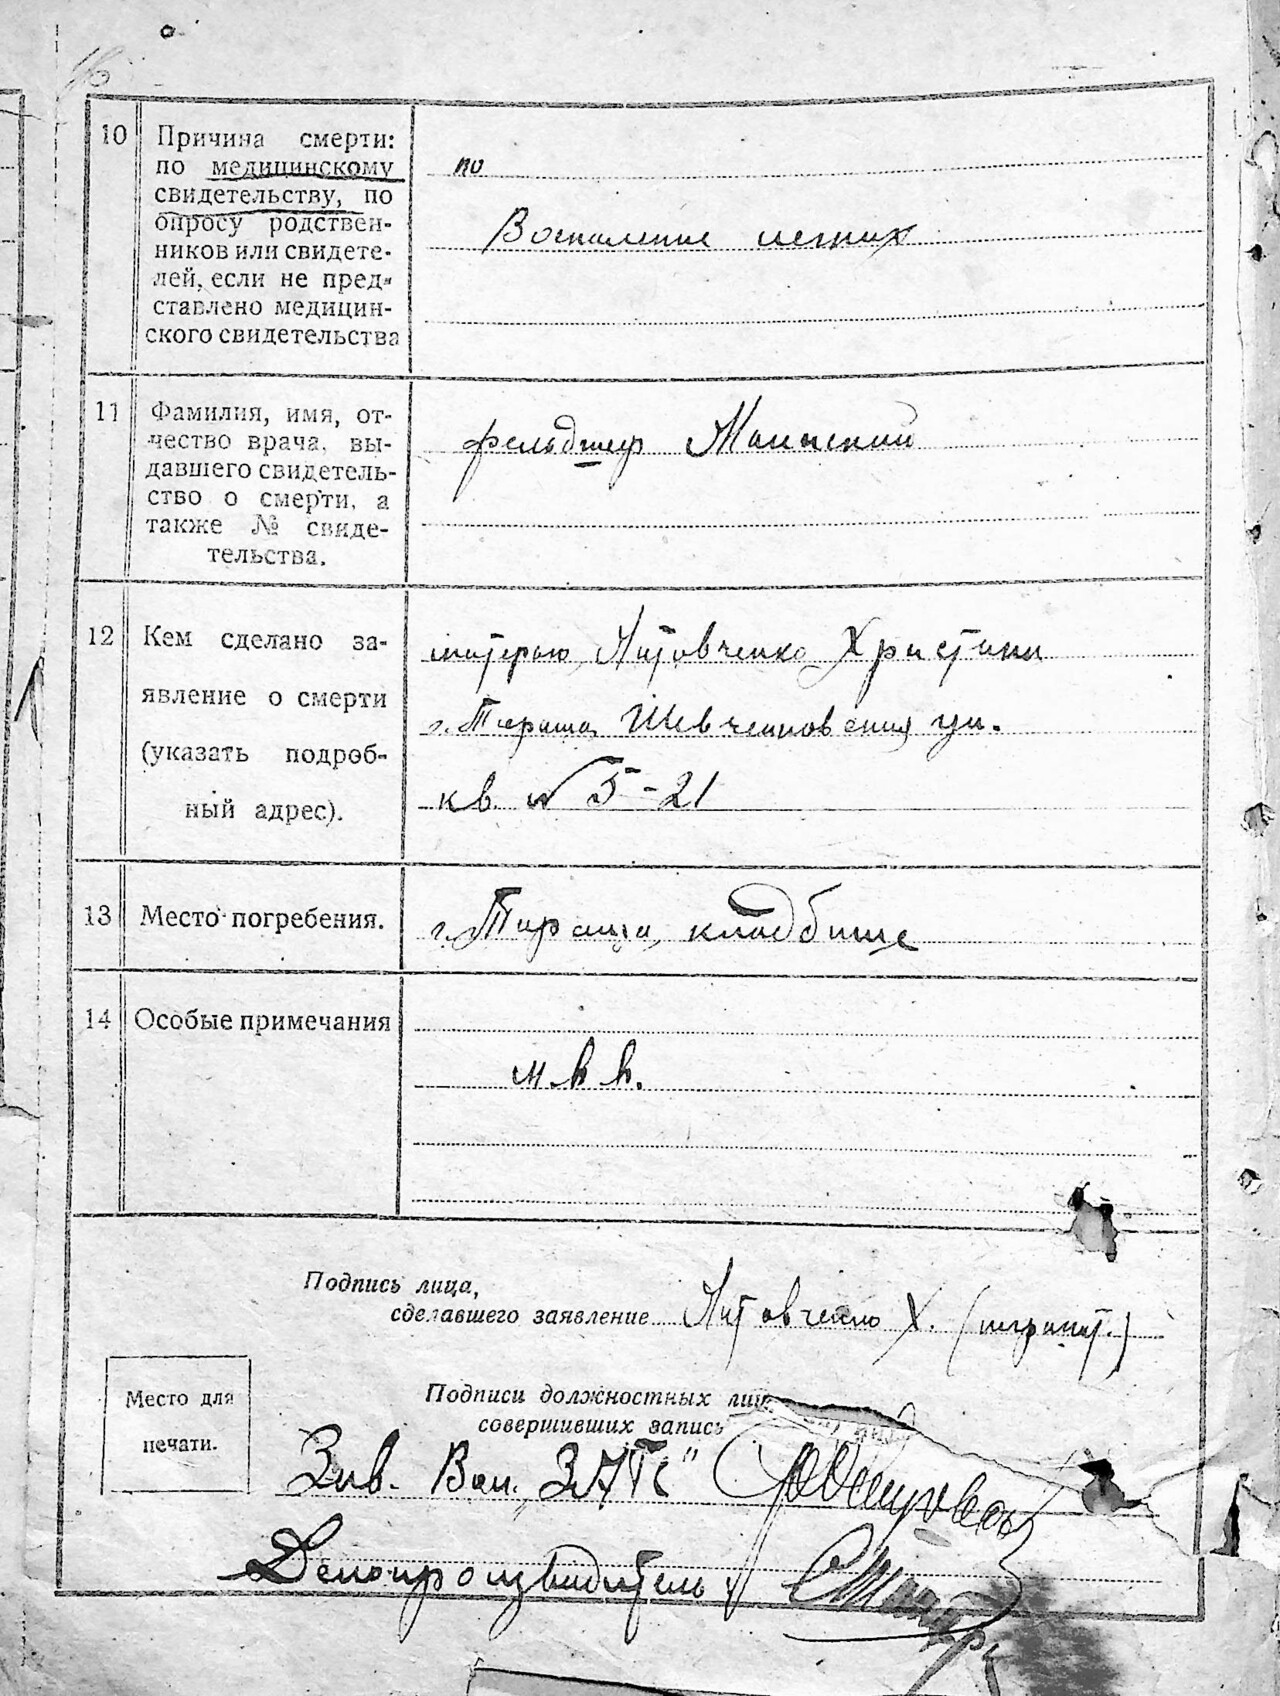 10
Причина смерти:
по медицинскому
свидетельству, по
опросу родствен-
ников или свидете-
лей, если не пред-
ставлено медицин-
ского свидетельства
по
Воспаление легких
11
Фамилия, имя, от-
чество врача, вы-
давшего свидетель-
ство о смерти, а
также № свиде-
тельства.
фельдшер
12
Кем сделано за-
явление о смерти
(указать подроб-
ный адрес).
матерью Литовченко Христини
г. Тараща, Шевченковская ул.
кв. № 5-21
13
Место погребения.
г. Тараща, кладбище
14
Особые примечания
Подпись лица,
сделавшего заявление
Литовченко Х. (неграмот.)
Место для
печати.
Подписи должностных лиц,
совершивших запись
Зав. ЗАГС
Делопроизводитель